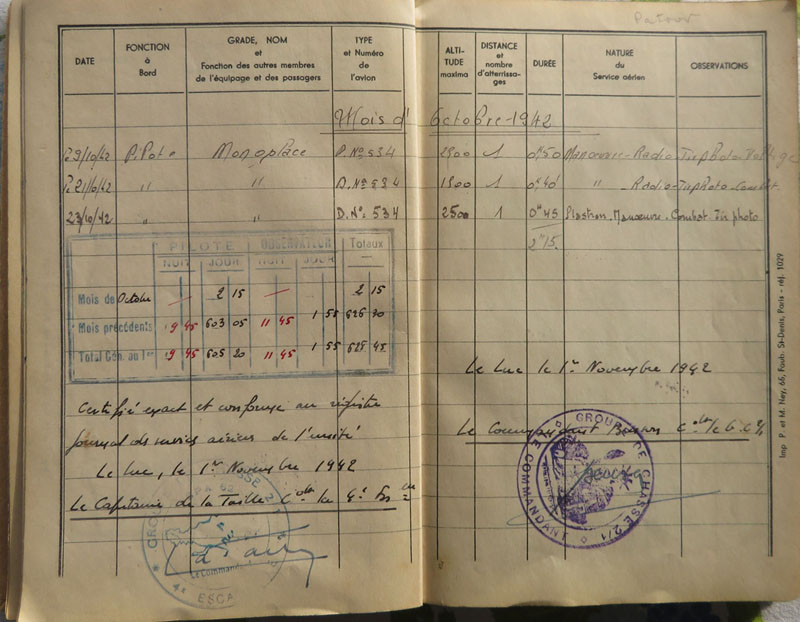 Patrov
DATE
FONCTION
à
Bord
GRADE, NOM
et
Fonction des autres membres
de l'équipage et des passagers
TYPE
et Numéro
de
l'avion
ALTI-
TUDE
maxima
DISTANCE
et
nombre
d'atterrissa-
ges
DURÉE
NATURE
du
Service aérien
OBSERVATIONS
Mois d'Octobre-1942
9/10/42 Pilote Monoplace D.N° 534 1 0h50 Manœuvre-Radio-Tir photo
21/10/42 " " D.N° 534 1 0h40 " -Radio-Tir photo-Combat
23/10/42 " " D.N° 534 2500 1 0h45 Plastron. Manœuvre. Combat. Tir photo
2h15.
PILOTE OBSERVATEUR Totaux
NUIT JOUR NUIT JOUR
Mois de Octobre — 2 15 — 2 15
Mois précédents 9 45 603 05 11 45 1 55 626 30
Total Gén. au 1er 9 45 605 20 11 45 1 55 45
Certifié exact et conforme au registre
journal des services aériens de l'unité
Le Luc, le 1er Novembre 1942
Le Capitaine de la Taille Cdt la 4e
4e ESCA
Le Luc le 1er Novembre 1942
Le Commandant Cdt le G.C.
GROUPE DE CHASSE 2/1
LE COMMANDANT
Imp P. et M. Ney, 65, Faub. St-Denis, Paris - réf. 1029